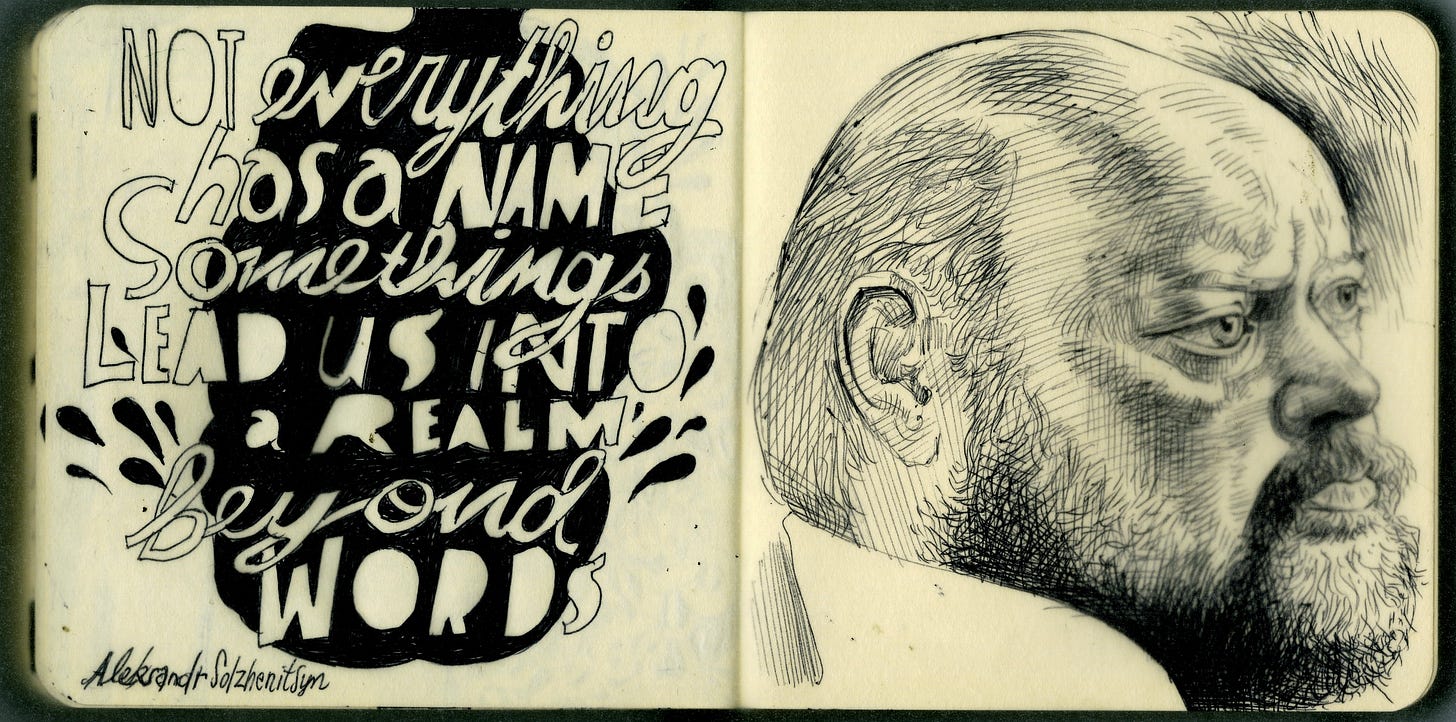 NOT everything
has a NAME
Somethings
LEAD US INTO
a REALM
beyond
WORDS
Aleksandr Solzhenitsyn